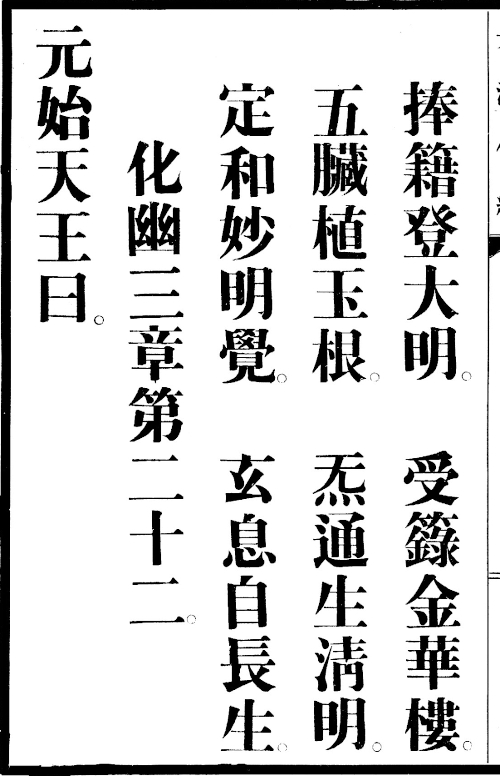 捧籍登大明。　受籙金華樓。
五臟植玉根。　炁通生清明。
定和妙明覺。　玄息自長生。
化幽三章第二十二。
元始天王曰。